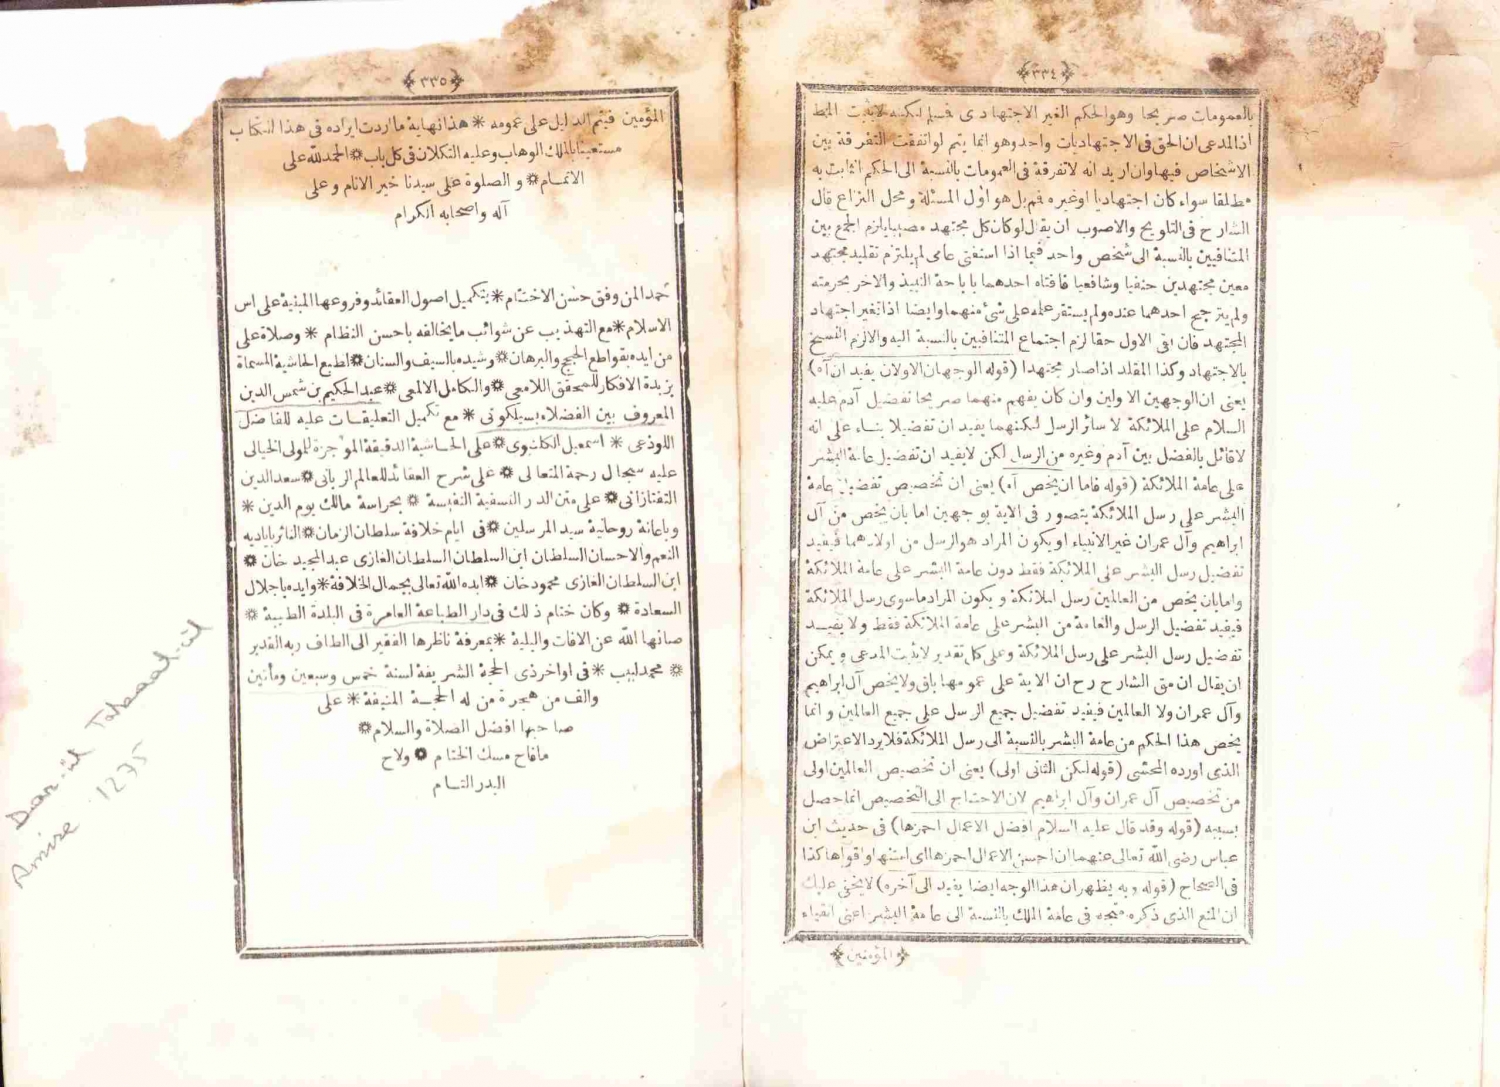 ﴿٣٣٤﴾
بالعمومات صريحا وهو الحكم الغير الاجتهادى فسلم لكنه لا يثبت المط
اذ المدعى ان الحق فى الاجتهاديات واحد وهو انما يتم لو اتفقت التفرقة بين
الاشخاص فيها وان اريد انه لا تفرقة فى العمومات بالنسبة الى الحكم الثابت به
مطلقا سواء كان اجتهاديا او غيره فم بل هو اول المسئلة ومحل النزاع قال
الشارح فى التلويح والاصوب ان يقال لو كان كل مجتهد مصيبا يلزم الجمع بين
المتنافيين بالنسبة الى شخص واحد فيما اذا استفتى عامى لم يلتزم تقليد مجتهد
معين مجتهدين حنفيا وشافعيا فافتاه احدهما باباحة النبيذ والاخر بحرمته
ولم يترجح احدهما عنده ولم يستقر علمه على شئ منهما وايضا اذا تغير اجتهاد
المجتهد فان بقى الاول حقا لزم اجتماع المتنافيين بالنسبة اليه والالزم النسخ
بالاجتهاد وكذا المقلد اذا صار مجتهدا (قوله الوجهان الاولان يفيد ان آه)
يعنى ان الوجهين الاولين وان كان يفهم منهما صريحا تفضيل آدم عليه
السلام على الملائكة لا سائر الرسل لكنهما يفيد ان تفضيلا بناء على انه
لا قائل بالفضل بين آدم وغيره من الرسل لكن لا يفيد ان تفضيل عامة البشر
على عامة الملائكة (قوله فاما ان يخص آه) يعنى ان تخصيص تفضيل عامة
البشر على رسل الملائكة يتصور فى الاية بوجهين اما بان يخص من آل
ابراهيم وآل عمران غير الانبياء او يكون المراد هو الرسل من اولادهما فيفيد
تفضيل رسل البشر على الملائكة فقط دون عامة البشر على عامة الملائكة
واما بان يخص من العالمين رسل الملائكة ويكون المراد ما سوى رسل الملائكة
فيفيد تفضيل الرسل والعامة من البشر على عامة الملائكة فقط ولا يفيد
تفضيل رسل البشر على رسل الملائكة وعلى كل تقدير لا يثبت المدعى ويمكن
ان يقال ان مق الشارح رح ان الاية على عمومها باق ولا يخص آل ابراهيم
وآل عمران ولا العالمين فيفيد تفضيل جميع الرسل على جميع العالمين وانما
يخص هذا الحكم من عامة البشر بالنسبة الى رسل الملائكة فلا يرد الاعتراض
الذى اورده المحشى (قوله لكن الثانى اولى) يعنى ان تخصيص العالمين اولى
من تخصيص آل عمران وآل ابراهيم لان الاحتاج الى التخصيص انما حصل
بسببه (قوله وقد قال عليه السلام افضل الاعمال احمزها) فى حديث ابن
عباس رضى الله تعالى عنهما ان احسن الاعمال احمزها اى امتنها واقواها كذا
فى الصحاح (قوله وبه يظهر ان هذا الوجه ايضا يفيد الى آخره) لا يخفى عليك
ان المنع الذى ذكره متجه فى عامة الملك بالنسبة الى عامة البشر اعنى اتقياء
﴿المؤمنين﴾
﴿٣٣٥﴾
المؤمنين فيتم الدليل على عمومه * هذا نهاية ما اردت ايراده فى هذا الكتاب
مستعينا بالملك الوهاب وعليه التكلان فى كل باب * الحمد لله على
الاتمام * والصلوة على سيدنا خير الانام وعلى
آله واصحابه الكرام
حمدا لمن وفق حسن الاختتام * بتكميل اصول العقائد وفروعها المبنية على اس
الاسلام * مع التهذيب عن شوائب ما يخالفه باحسن النظام * وصلاة على
من ايده بقواطع الحجج والبرهان * وشيده بالسيف والسنان * لطبع الحاشية المسماة
بزبدة الافكار للمحقق اللامعى * والكامل الالمعى * عبد الحكيم بن شمس الدين
المعروف بين الفضلاء بسيلكوتى * مع تكميل التعليقات عليه للفاضل
اللوذعى * اسمعيل الكلنبوى * على الحاشية الدقيقة الموجزة للمولى الخيالى
عليه سجال رحمة المتعالى * على شرح العقائد للعالم الربانى * سعد الدين
التفتازانى * على متن الدرر النسفية النفيسة * بحراسة مالك يوم الدين *
وباعانة روحانية سيد المرسلين * فى ايام خلافة سلطان الزمان * الناثر باياديه
النعم والاحسان السلطان ابن السلطان السلطان الغازى عبد المجيد خان *
ابن السلطان الغازى محمود خان * ايده الله تعالى بجمال الخلافة * وايده باجلال
السعادة * وكان ختام ذلك فى دار الطباعة العامرة فى البلدة الطيبة *
صانها الله عن الافات والبلية * بمعرفة ناظرها الفقير الى الطاف ربه القدير
* محمد لبيب * فى اواخر ذى الحجة الشريفة لسنة خمس وسبعين ومأتين
والف من هجرة من له الحجة المنيفة * على
صاحبها افضل الصلاة والسلام *
ما فاح مسك الختام * ولاح
البدر التمام
Dar-ül Tabaad-ül
Amire 1275